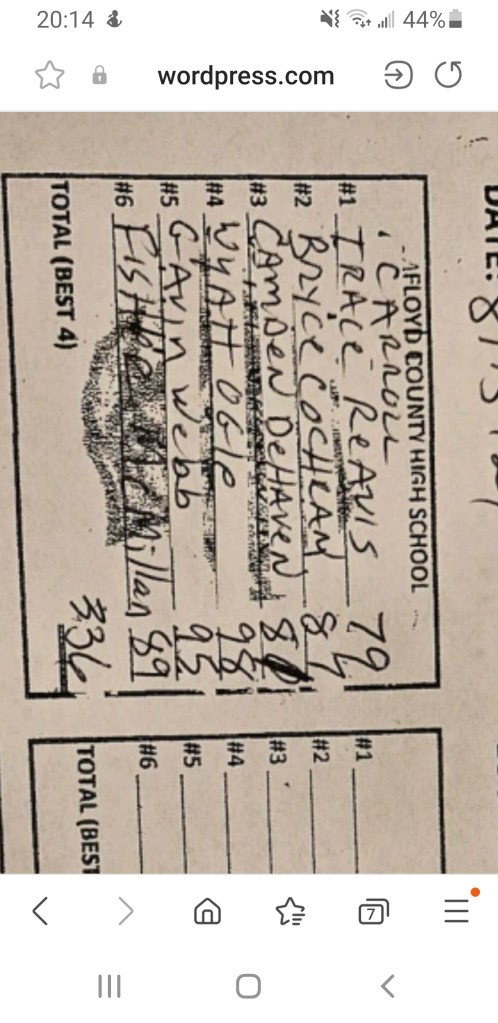 20:14
44%
wordpress.com
DATE: 8/
FLOYD COUNTY HIGH SCHOOL
CARROLL
#1 TRACE REAVIS 79
#2 BRYCE COCHRAN 84
#3 CAMDEN DeHAVEN
#4 WYATT OGLE 98
#5 GAVIN Webb 95
#6 McMillan 89
TOTAL (BEST 4) 336
#1
#2
#3
#4
#5
#6
TOTAL (BEST
7